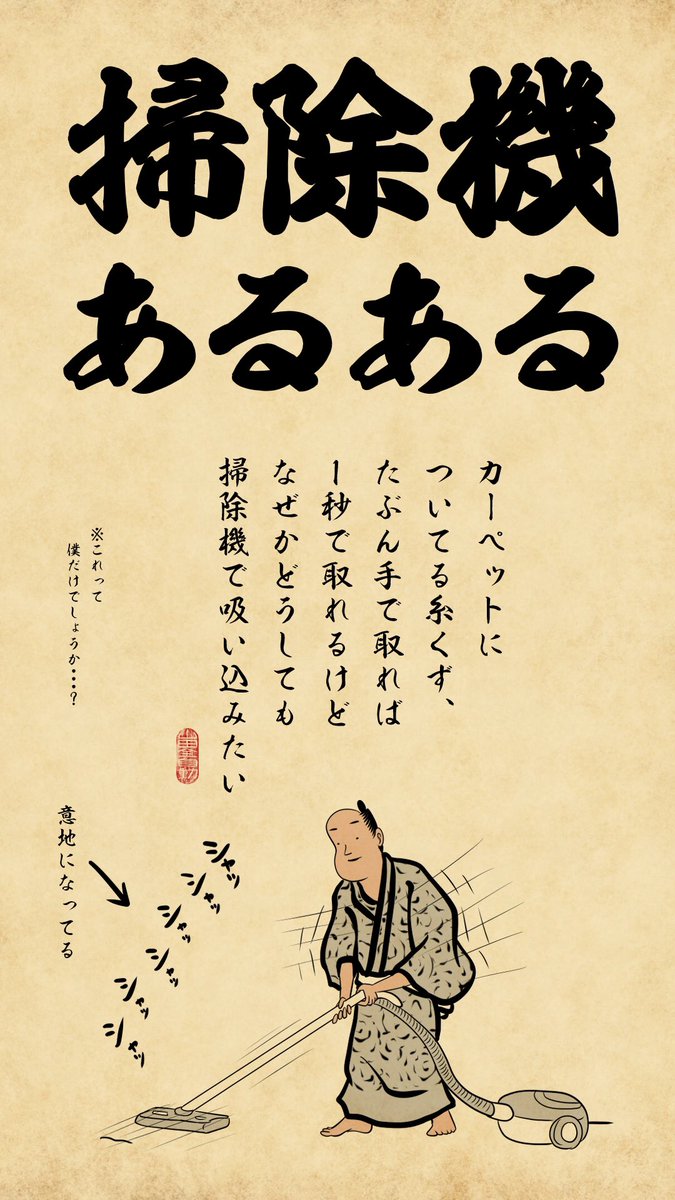 掃除機
あるある
カーペットに
ついてる糸くず、
たぶん手で取れば
1秒で取れるけど
なぜかどうしても
掃除機で吸い込みたい
※これって
僕だけでしょうか…?
意地になってる
シャッ
シャッ
シャッ
シャッ
シャッ
シャッ